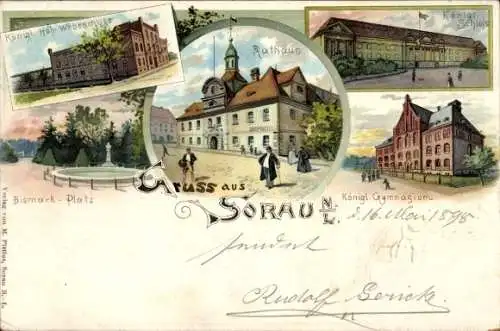 Königl. Höh. Webeschule
Rathaus
Königl. Schloss
Bismarck-Platz
Königl. Gymnasium
Gruss aus
Sorau N/L.
d. 16 Mai 1898
sendet
Rudolf
Verlag von M. Sorau N.-L.